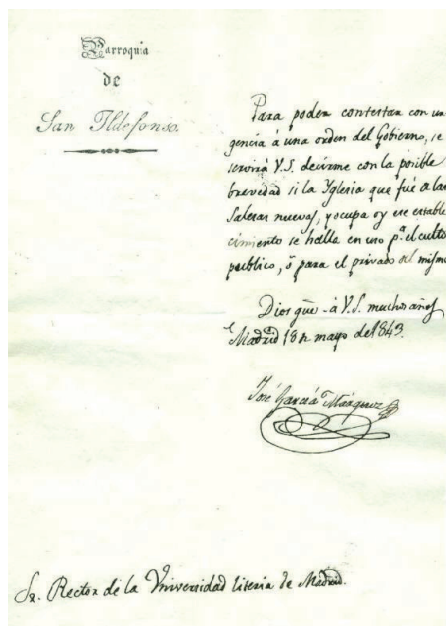 Parroquia
de
San Ildefonso.
Para poder contestar con ur
gencia á una orden del Gobierno, se
servirá V.S. decirme con la posible
brevedad si la Yglesia que fué de las
Salesas nuevas, y ocupa oy ese estable
cimiento se halla en uso pª el culto
publico, ó para el privado del mismo
Dios gũe á V.S. muchos años
Madrid 18 mayo de 1843.
José García Márquez
Sr. Rector de la Universidad literia de Madrid.